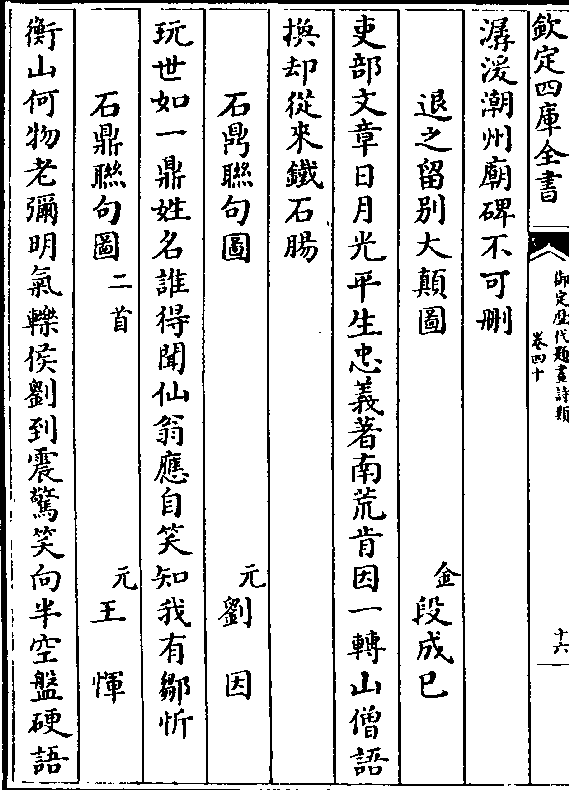 欽定四庫全書
御定歷代題畫詩類
卷四十
十六
潺湲潮州廟碑不可刪
退之留别大顛圖
金 段成已
吏部文章日月光平生忠義著南荒肯因一轉山僧語
換却從來鐵石腸
石鼎聯句圖
元 劉因
玩世如一鼎姓名誰得聞仙翁應自笑知我有鄒忻
石鼎聯句圖 二首
元 王惲
衡山何物老彌明氣轢侯劉到震驚笑向半空盤硬語